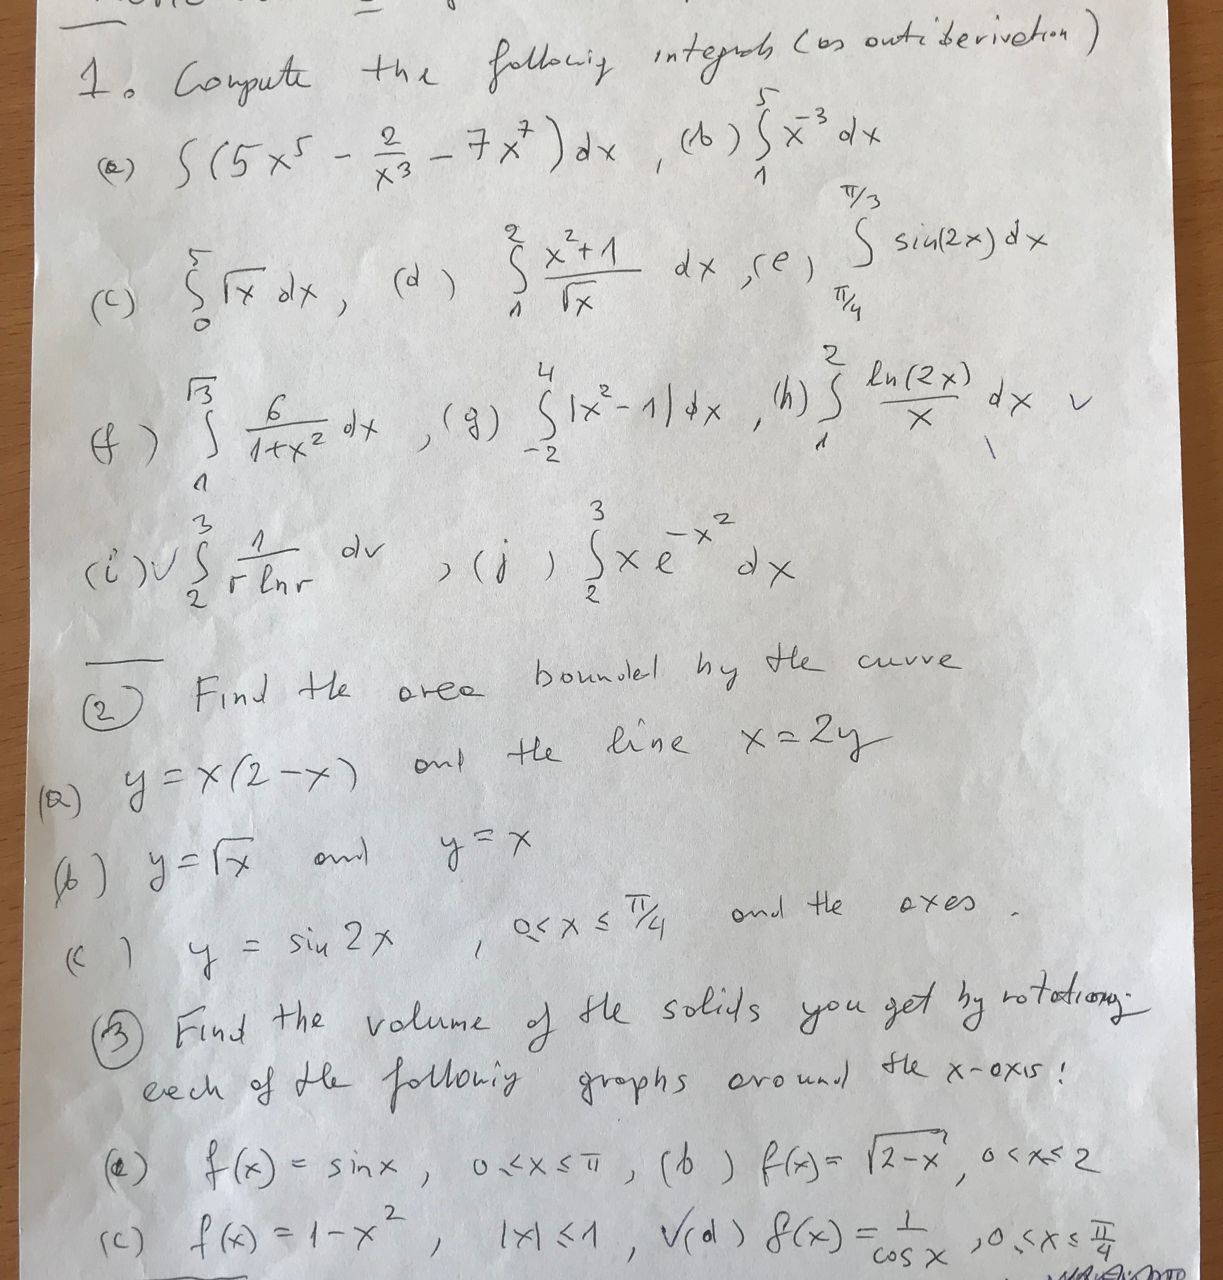 1. Compute the following integrals (as antiderivation)
(a) ∫(5x⁵ - 2/x³ - 7x⁷)dx, (b) ∫₁⁵ x⁻³ dx
(c) ∫₀⁵ √x dx, (d) ∫₁² (x²+1)/√x dx, (e) ∫_{π/4}^{π/3} sin(2x)dx
(f) ∫₁^{√3} 6/(1+x²) dx, (g) ∫₋₂⁴ |x²-1|dx, (h) ∫₁² ln(2x)/x dx ✓
(i) ✓ ∫₂³ 1/(r ln r) dr, (j) ∫₂³ x e^{-x²} dx
② Find the area bounded by the curve
(a) y = x(2-x) and the line x=2y
(b) y = √x and y = x
(c) y = sin 2x, 0≤ x ≤ π/4 and the axes.
③ Find the volume of the solids you get by rotationg
each of the following graphs around the x-axis:
(a) f(x) = sin x, 0≤x≤π, (b) f(x) = √(2-x), 0<x≤2
(c) f(x) = 1-x², |x| ≤1, ✓(d) f(x) = 1/cos x, 0≤x≤ π/4